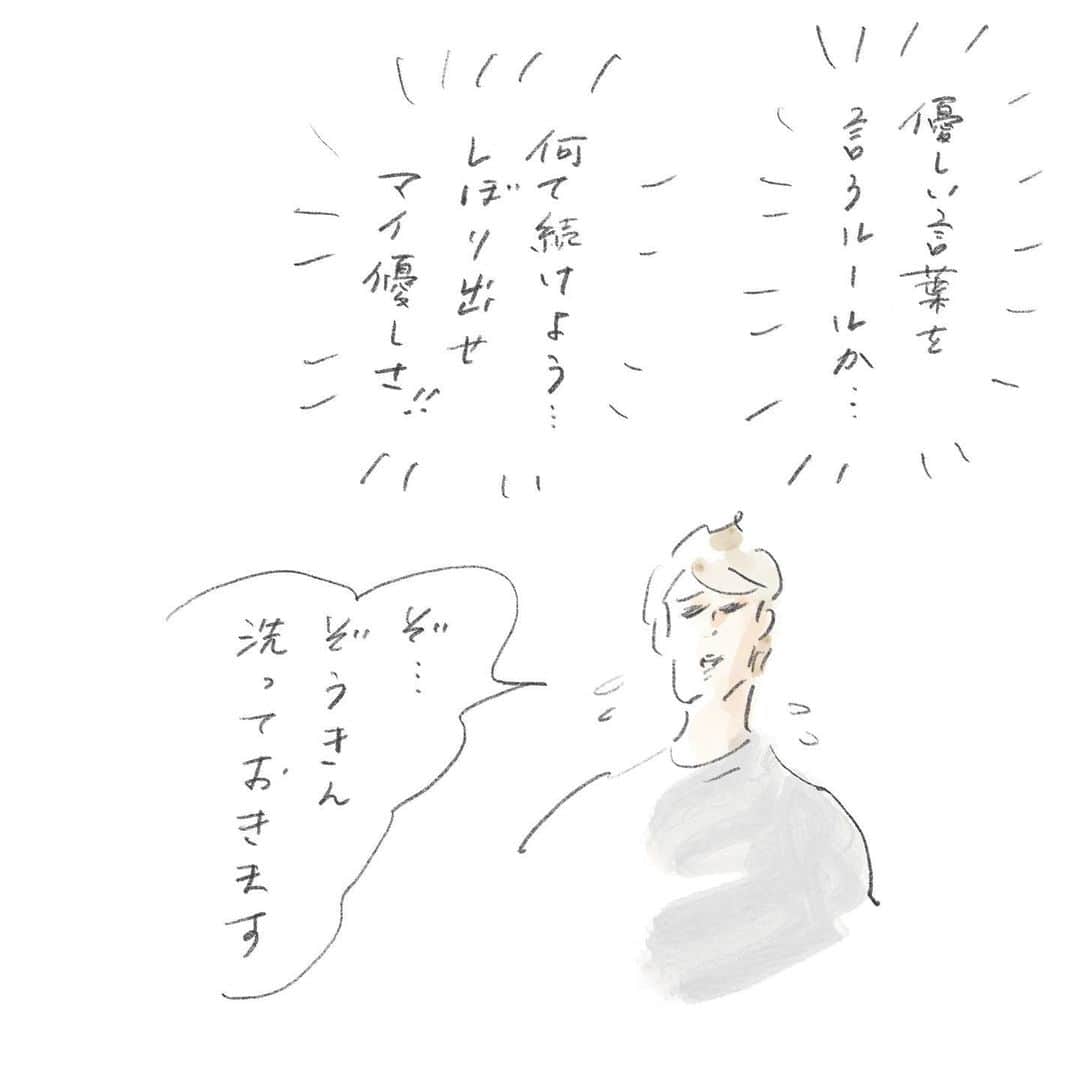 優しい言葉を
言うルールか…
何て続けよう…
しぼり出せ
マイ優しさ!!
ぞ…
ぞうきん
洗っておきます